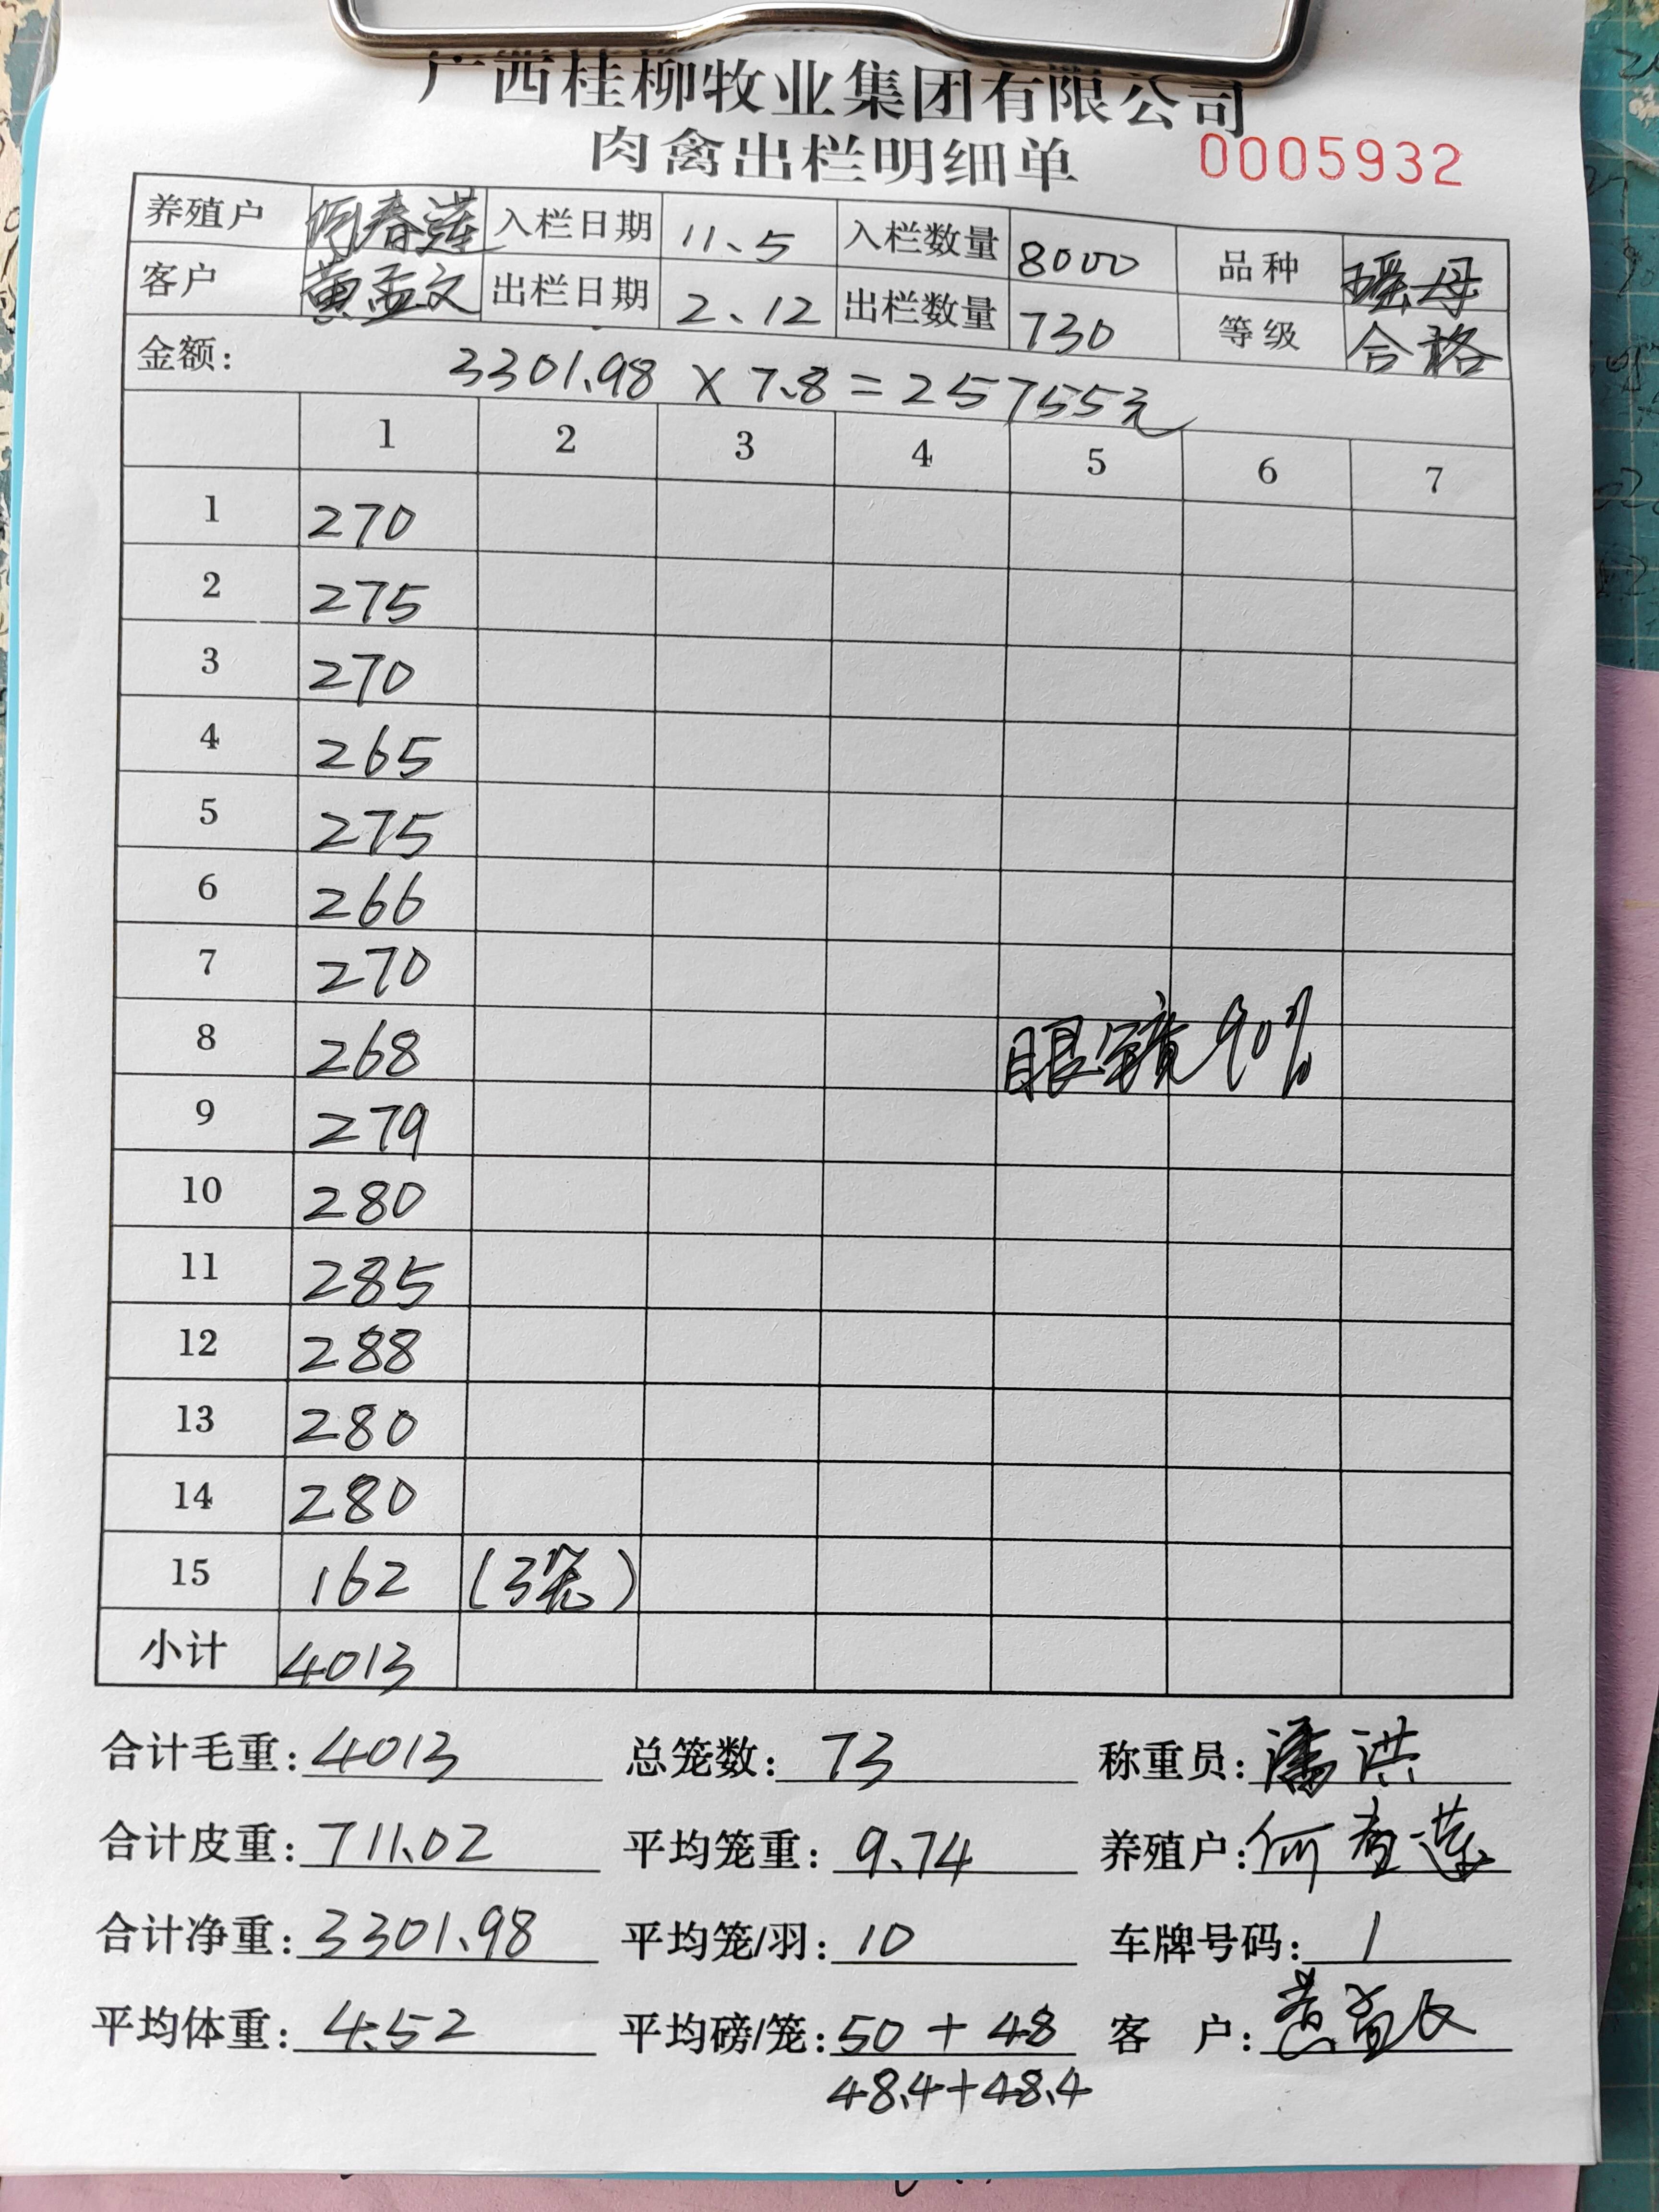 广西桂柳牧业集团有限公司
肉禽出栏明细单 0005932
养殖户 何春莲 入栏日期 11、5 入栏数量 8000 品种 瑶母
客户 黄孟文 出栏日期 2、12 出栏数量 730 等级 合格
金额: 3301.98 × 7.8 = 25755元
1 2 3 4 5 6 7
1 270
2 275
3 270
4 265
5 275
6 266
7 270
8 268 眼镜90%
9 279
10 280
11 285
12 288
13 280
14 280
15 162 (3笼)
小计 4013
合计毛重: 4013 总笼数: 73 称重员: 潘洪
合计皮重: 711.02 平均笼重: 9.74 养殖户: 何春莲
合计净重: 3301.98 平均笼/羽: 10 车牌号码: 1
平均体重: 4.52 平均磅/笼: 50 + 48 客 户: 黄孟文
48.4+48.4